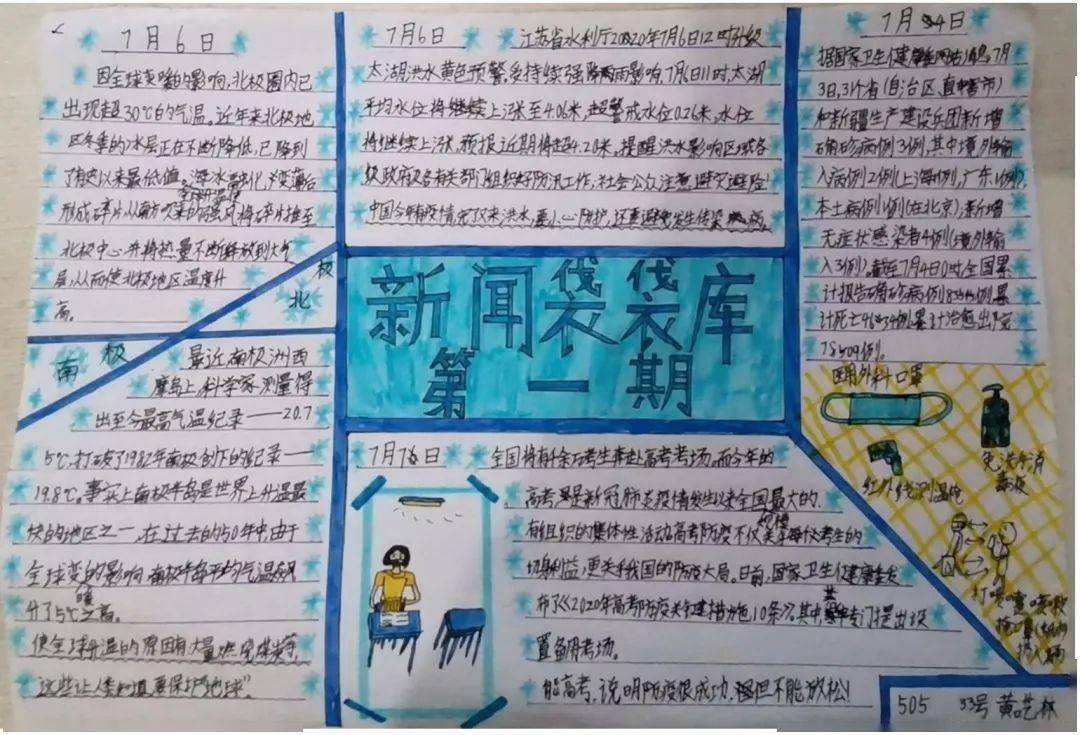 7月6日
因全球变暖的影响,北极圈内已
出现超30℃的气温,近年来北极地
区冬季的冰层正在不断降低,已降到
了有史以来最低值。
形成碎片从南方吹来的强风将碎片推至
北极中心并将热量不断释放到大气
层,从而使北极地区温度升
高。
北极
南极
最近南极洲西
摩岛上,科学家测量得
出至今最高气温纪录——20.7
5℃,打破了1982年南极创下的纪录——
19.8℃。事实上南极半岛是世界上升温最
快的地区之一,在过去的50年中,由于
全球变暖的影响,南极半岛平均气温飙
升了5℃之高。
使全球升温的原因有大量燃烧煤炭等,
这些让人类知道要保护地球”。
7月6日
江苏省水利厅2020年7月6日12时升级
太湖洪水黄色预警,受持续强降雨影响,7月6日11时太湖
平均水位将继续上涨至4.06米,超警戒水位0.26米,水位
将继续上涨,预报近期将超4.20米,提醒洪水影响区域各
级政府及各有关部门组织好防汛工作,社会公众注意避灾避险!
中国今年有疫情完仅来洪水,要小心防护,还要避免发生传染
新闻袋袋库
第一期
7月7日
全国将有千余万考生奔赴高考考场,而今年的
高考是新冠肺炎疫情发生以来全国最大的、
有组织的集体性活动。高考防疫不仅关乎每位考生的
切身利益,更关乎我国的防疫大局。日前,国家卫生健康委发
布了《2020年高考防疫关键措施10条》,其中专门提出设
置备用考场。
能高考,说明防疫很成功,但不能放松!
7月4日
据国家卫生健康委网站消息,7月
3日,31个省(自治区、直辖市)
和新疆生产建设兵团新增
确诊病例3例,其中境外输
入病例2例(上海1例,广东1例),
本土病例1例(在北京);新增
无症状感染者4例(境外输
入3例),截至7月4日0时,全国累
计报告确诊病例
计死亡4634例,累计治愈出院
78509例。
医用外科口罩
免洗手消
毒液
红外线测温枪
打喷嚏咳嗽
505 33号 黄艺林